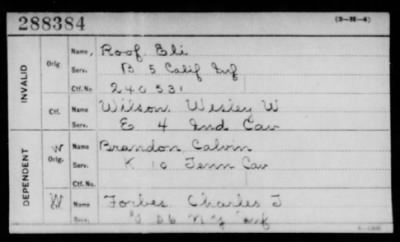 288384 (3-H-4)
INVALID
Orig Name, Roof Eli
Serv. B 5 Calif Inf
Ctf.No. 240531
Ctf. Name, Wilson Wesley W
Serv. E 4 Ind Cav
DEPENDENT
W Orig. Name, Brandon Calvin
Serv. K 10 Tenn Cav
Ctf. No.
W Name, Forbes Charles J
Serv. N Y Inf